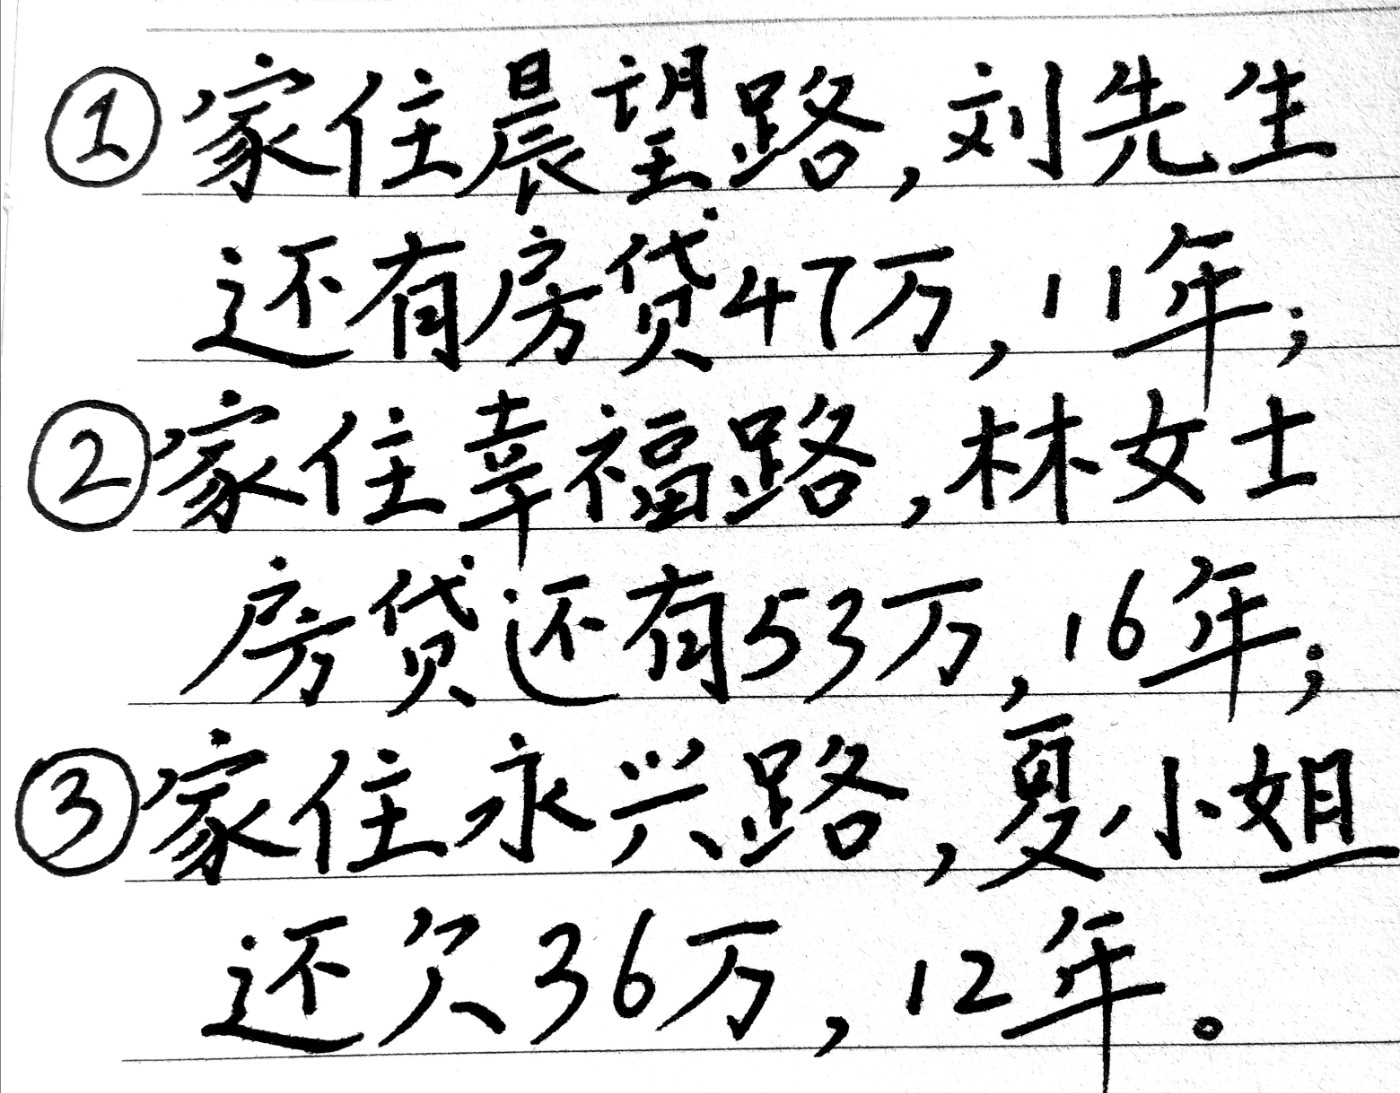 ①家住晨望路,刘先生
还有房贷47万,11年;
②家住幸福路,林女士
房贷还有53万,16年;
③家住永兴路,夏小姐
还欠36万,12年。